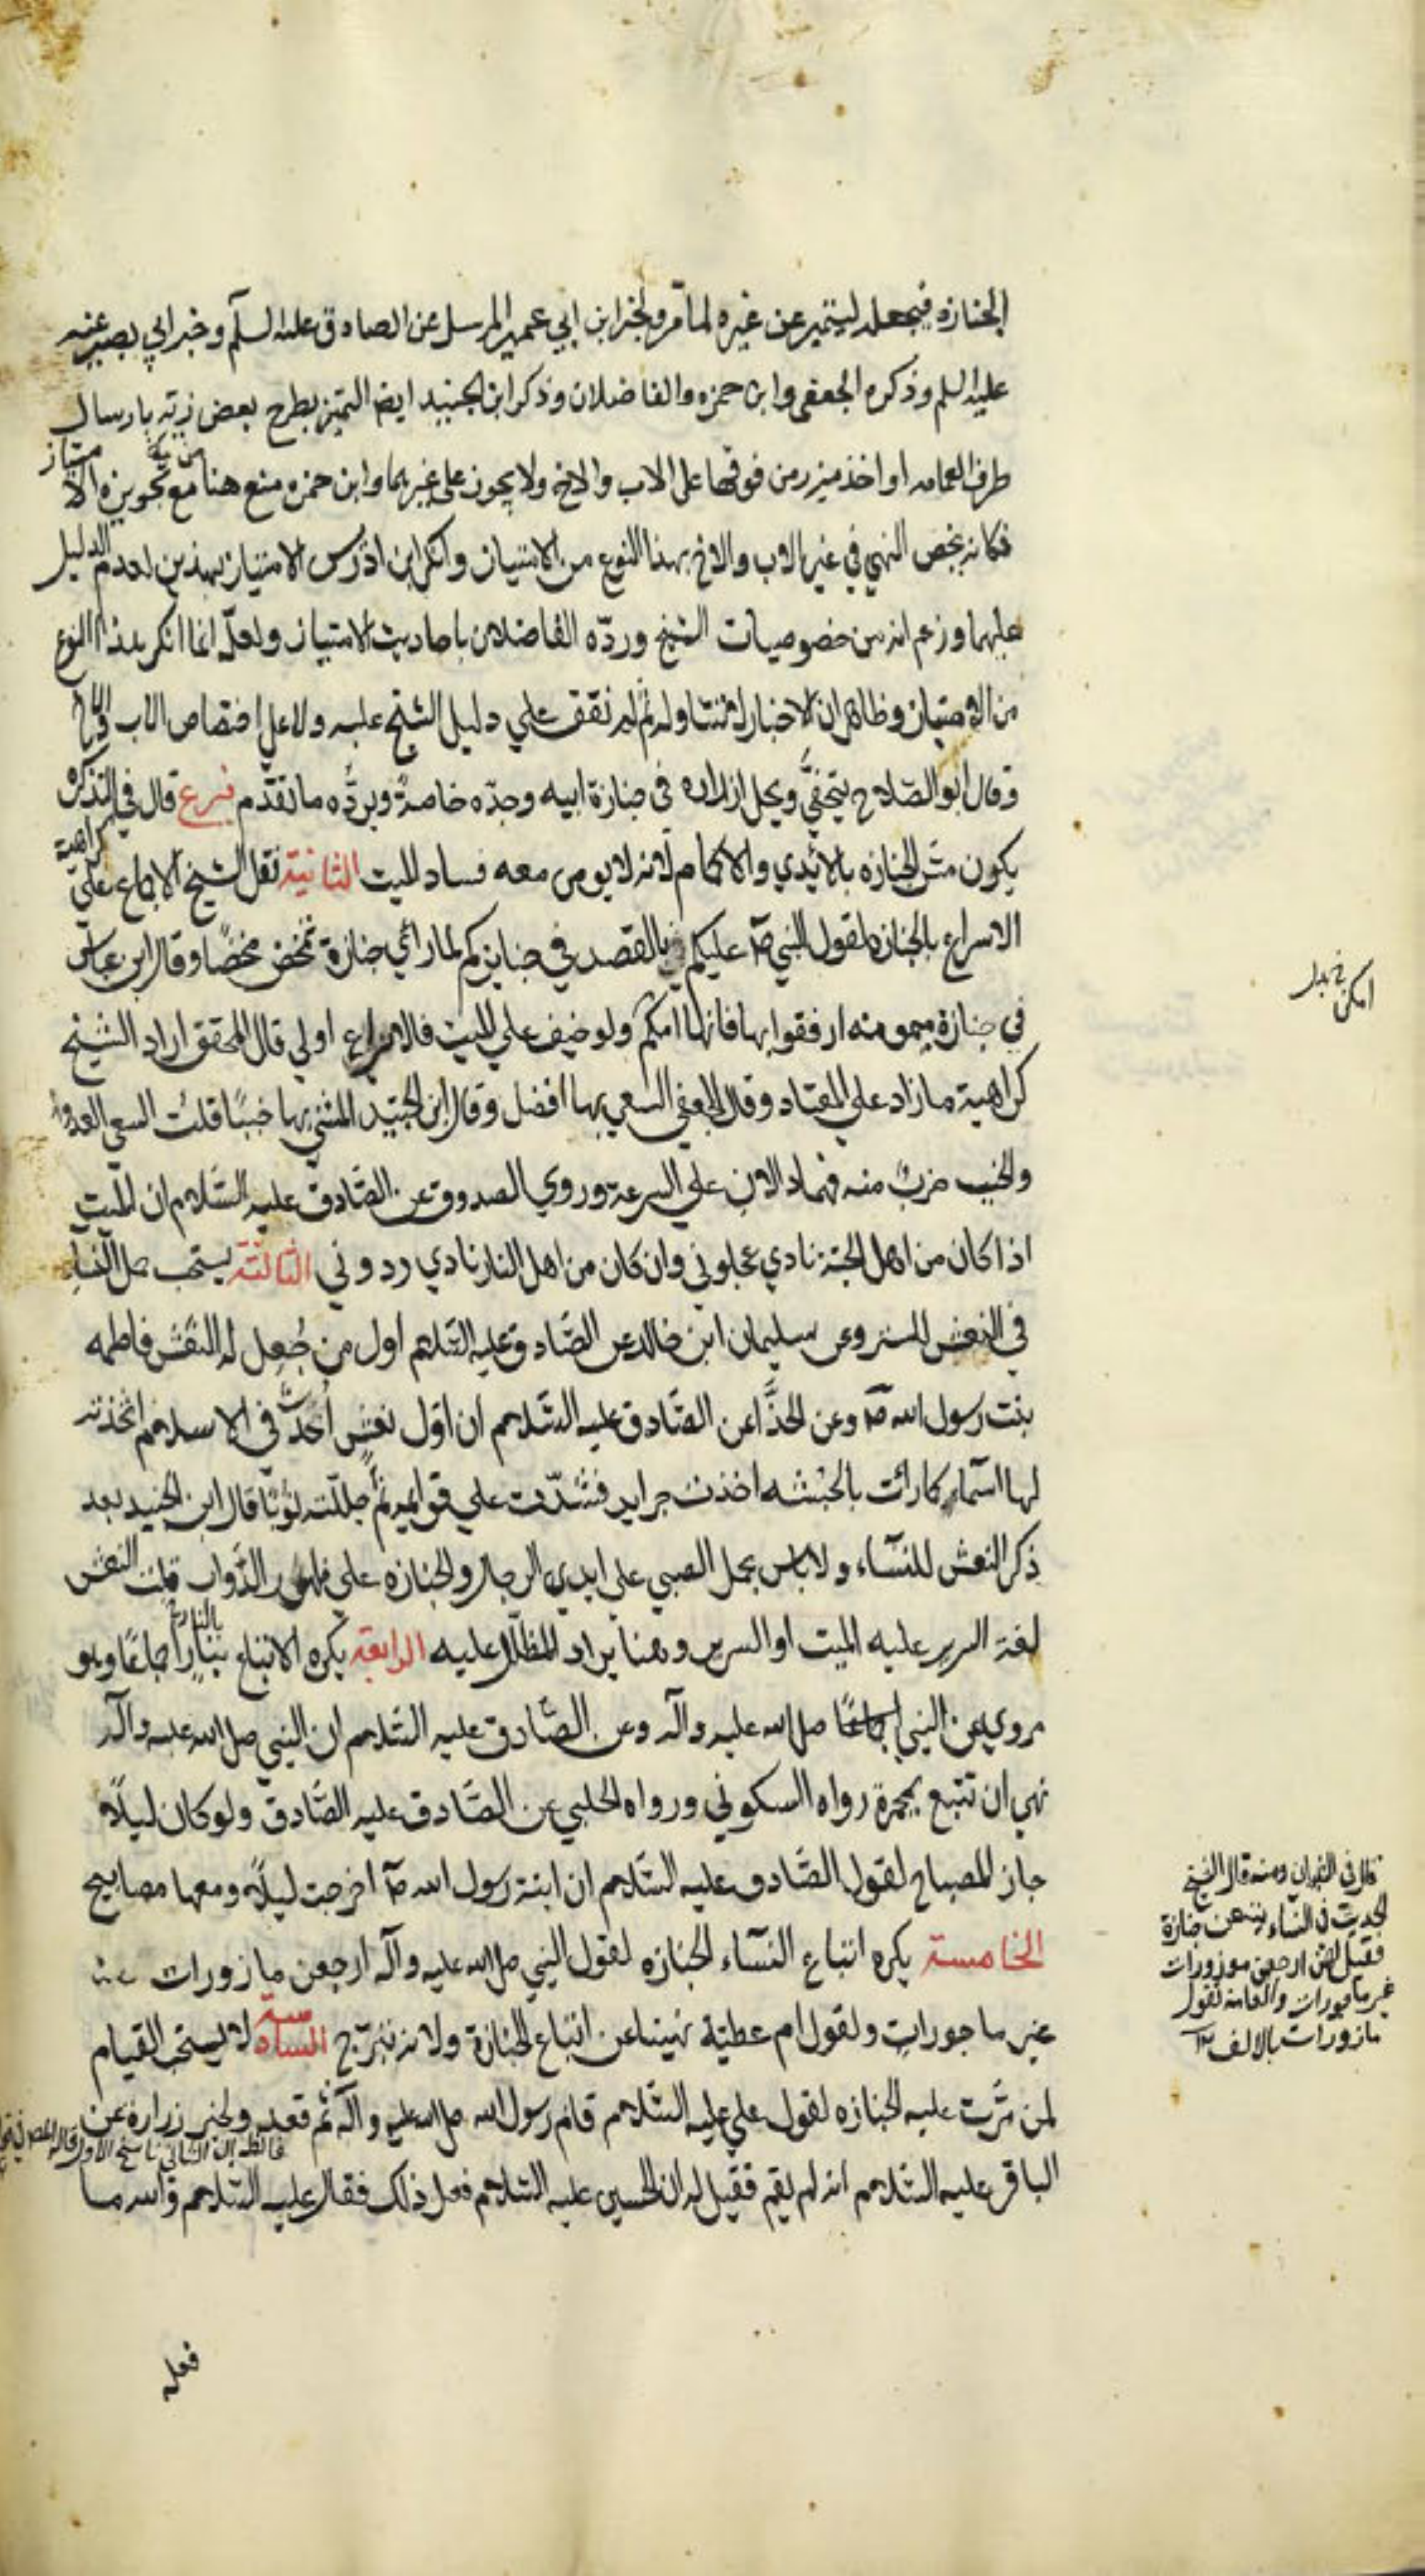 الجنازه فيجعله ليتميز عن غيره لما مرّ ولخبر ابن ابي عمير المرسل عن الصادق عليه السلام وخبر ابي بصير عنه
عليه السلم وذكره الجعفى وابن حمزه والفاضلان وذكر ابن الجنيد ايضا التميز بطرح بعض زيّه بارسال
طرف العمامه او اخذ ميزر من فوقها على الاب والاخ ولا يجوز على غيرهما وابن حمزه منع هنا مع تجويزه الامتياز
فكانه يخص النهي في غير الاب والاخ بهذا النوع من الامتياز وانكر ابن ادرس الامتياز بهذين لعدم الدليل
عليهما وزعم انه من خصوصيات الشيخ وردّه الفاضلان باحاديث الامتياز ولعلّه انما انكر هذا النوع
من الامتياز وظاهر ان الاخبار لا تتناوله ثم لم نقف علي دليل الشيخ عليه ولا على اختصاص الاب والاخ
وقال ابو الصّلاح يتحفّي ويحل ازراره في جنازة ابيه وجدّه خاصةً ويردّه ما تقدّم فرع قال في التذكره
يكون مشي الجنازه بالايدي والاكمام لانه لا يومن معه فساد الميت الثانية نقل الشيخ الاجماع على كراهية
الاسراع بالجنازه لقول النبي ص عليكم بالقصد في جنايزكم لما راي جنازة تمخض مخضًا وقال ابن عباس
في جنازة ميمونه ارفقوا بها فانها امكم ولو خيف علي الميت فالاسراع اولي قال المحقق اراد الشيخ
كراهية ما زاد على المعتاد وقال الجعفي السعي بها افضل وقال ابن الجنيد المشي بها خببًا قلت السعي العدو
والخبب ضرب منه فهما دالان على السرعة وروي الصدوق عن الصّادق عليه السّلام ان الميت
اذا كان من اهل الجنة نادي عجلوني وان كان من اهل النار نادي ردوني الثالثة يستحب حمل النساء
في النعش للستر وعن سليمان ابن خالد عن الصّادق عليه السّلام اول من جُعل له النعش فاطمه
بنت رسول الله ص وعن الحذّاء عن الصّادق عليه السّلام ان اوّل نعش اُحدث في الاسلام اتخذته
لها اسماء كما رات بالحبشه اخذت جرايد فشدّت علي قوايمه ثم جللته ثوبًا قال ابن الجنيد بعد
ذكر النعش للنسآء ولا باس بحمل الصبي على ايدي الرجال والجنازه على ظهور الدّواب قلت النعش
لغة السرير عليه الميت او السرير وهنا يراد المظلّل عليه الرابعة يكره الاتباع بنار اجماعًا وهو
مروي عن النبي صلى الله عليه وآله وعن الصّادق عليه السّلام ان النبي صلى الله عليه وآله
نهي ان تتبع بمجمرة رواه السكوني ورواه الحلبي عن الصّادق عليه الصّادق ولو كان ليلًا
جاز المصباح لقول الصّادق عليه السّلام ان ابنة رسول الله ص اخرجت ليلًا ومعها مصابيح
الخامسة يكره اتباع النسآء الجنازه لقول النبي صلى الله عليه وآله ارجعن مازورات
غير ماجورات ولقول ام عطيّة نهينا عن اتباع الجنازة ولانه تبرّج السادسة لا يستحب القيام
لمن مرّت عليه الجنازه لقول علي عليه السّلام قام رسول الله صلى الله عليه وآله ثم قعد ولخبر زرارة عن
فالظاهر ان الثاني ناسخ الاول
الباقر عليه السّلام انه لم يقم فقيل له ان الحسين عليه السّلام فعل ذلك فقال عليه السّلام والله ما
فعله
امكن خ بدل
قال في ومنه قال الشيخ
الحديث في النساء جنازة
فقيل لهن ارجعن موزورات
غير ماجورات والعامة تقول
مازورات بالالف ١٢